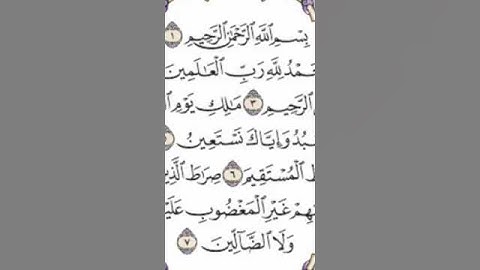 بِسْمِ ٱللَّهِ ٱلرَّحْمَٰنِ ٱلرَّحِيمِ ١
حَمْدُ لِلَّهِ رَبِّ ٱلْعَٰلَمِينَ
ٱلرَّحِيمِ ٣ مَٰلِكِ يَوْمِ
بُدُ وَإِيَّاكَ نَسْتَعِينُ
ٱلْمُسْتَقِيمَ ٦ صِرَٰطَ ٱلَّذِي
هِمْ غَيْرِ ٱلْمَغْضُوبِ عَلَيْ
وَلَا ٱلضَّآلِّينَ ٧